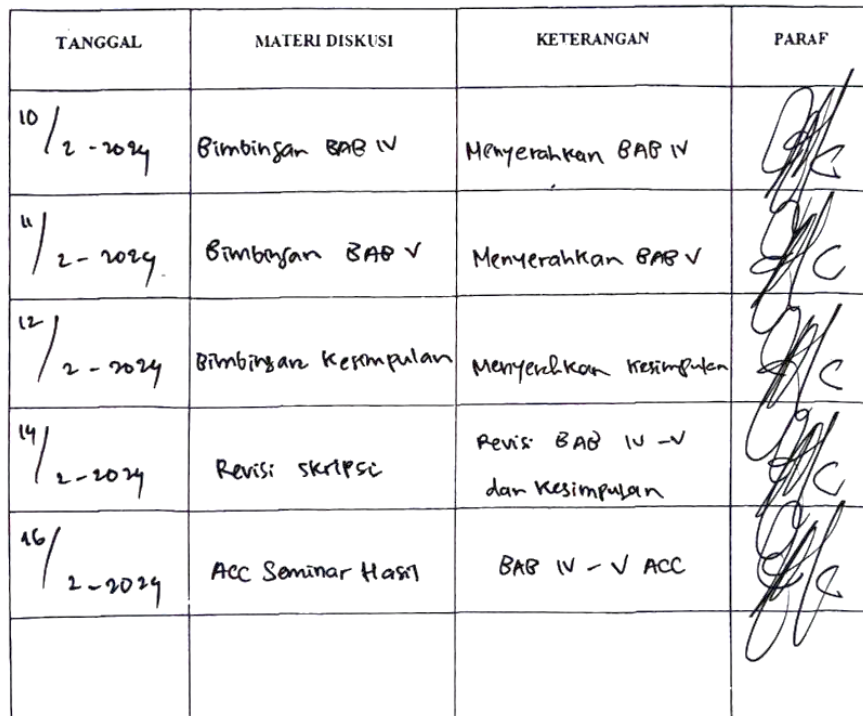 TANGGAL MATERI DISKUSI KETERANGAN PARAF
10/2-2024 Bimbingan BAB IV Menyerahkan BAB IV
11/2-2024 Bimbingan BAB V Menyerahkan BAB V
12/2-2024 Bimbingan Kesimpulan Menyerahkan Kesimpulan
14/2-2024 Revisi skripsi Revisi BAB IV-V
dan Kesimpulan
16/2-2024 ACC Seminar Hasil BAB IV - V ACC